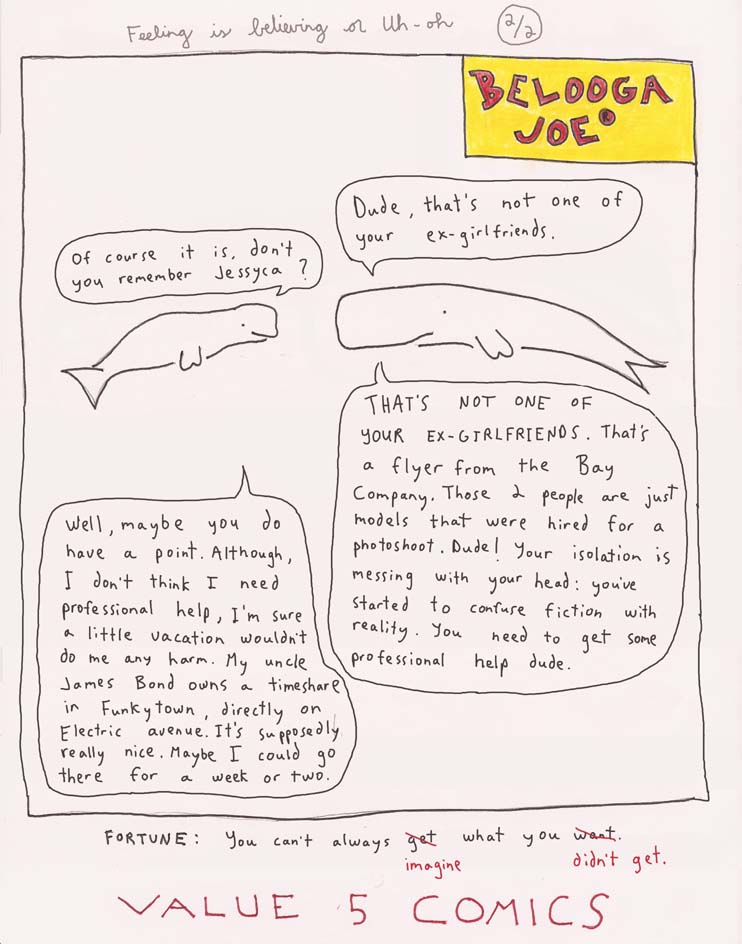 Feeling is believing or Uh-oh 2/2
BELOOGA
JOE®
Dude, that's not one of
your ex-girlfriends.
Of course it is, don't
you remember Jessyca?
THAT'S NOT ONE OF
YOUR EX-GIRLFRIENDS. That's
a flyer from the Bay
Company. Those 2 people are just
models that were hired for a
photoshoot. Dude! Your isolation is
messing with your head: you've
started to confuse fiction with
reality. You need to get some
professional help dude.
Well, maybe you do
have a point. Although,
I don't think I need
professional help, I'm sure
a little vacation wouldn't
do me any harm. My uncle
James Bond owns a timeshare
in Funkytown, directly on
Electric avenue. It's supposedly
really nice. Maybe I could go
there for a week or two.
FORTUNE: You can't always get what you want.
imagine didn't get.
VALUE 5 COMICS